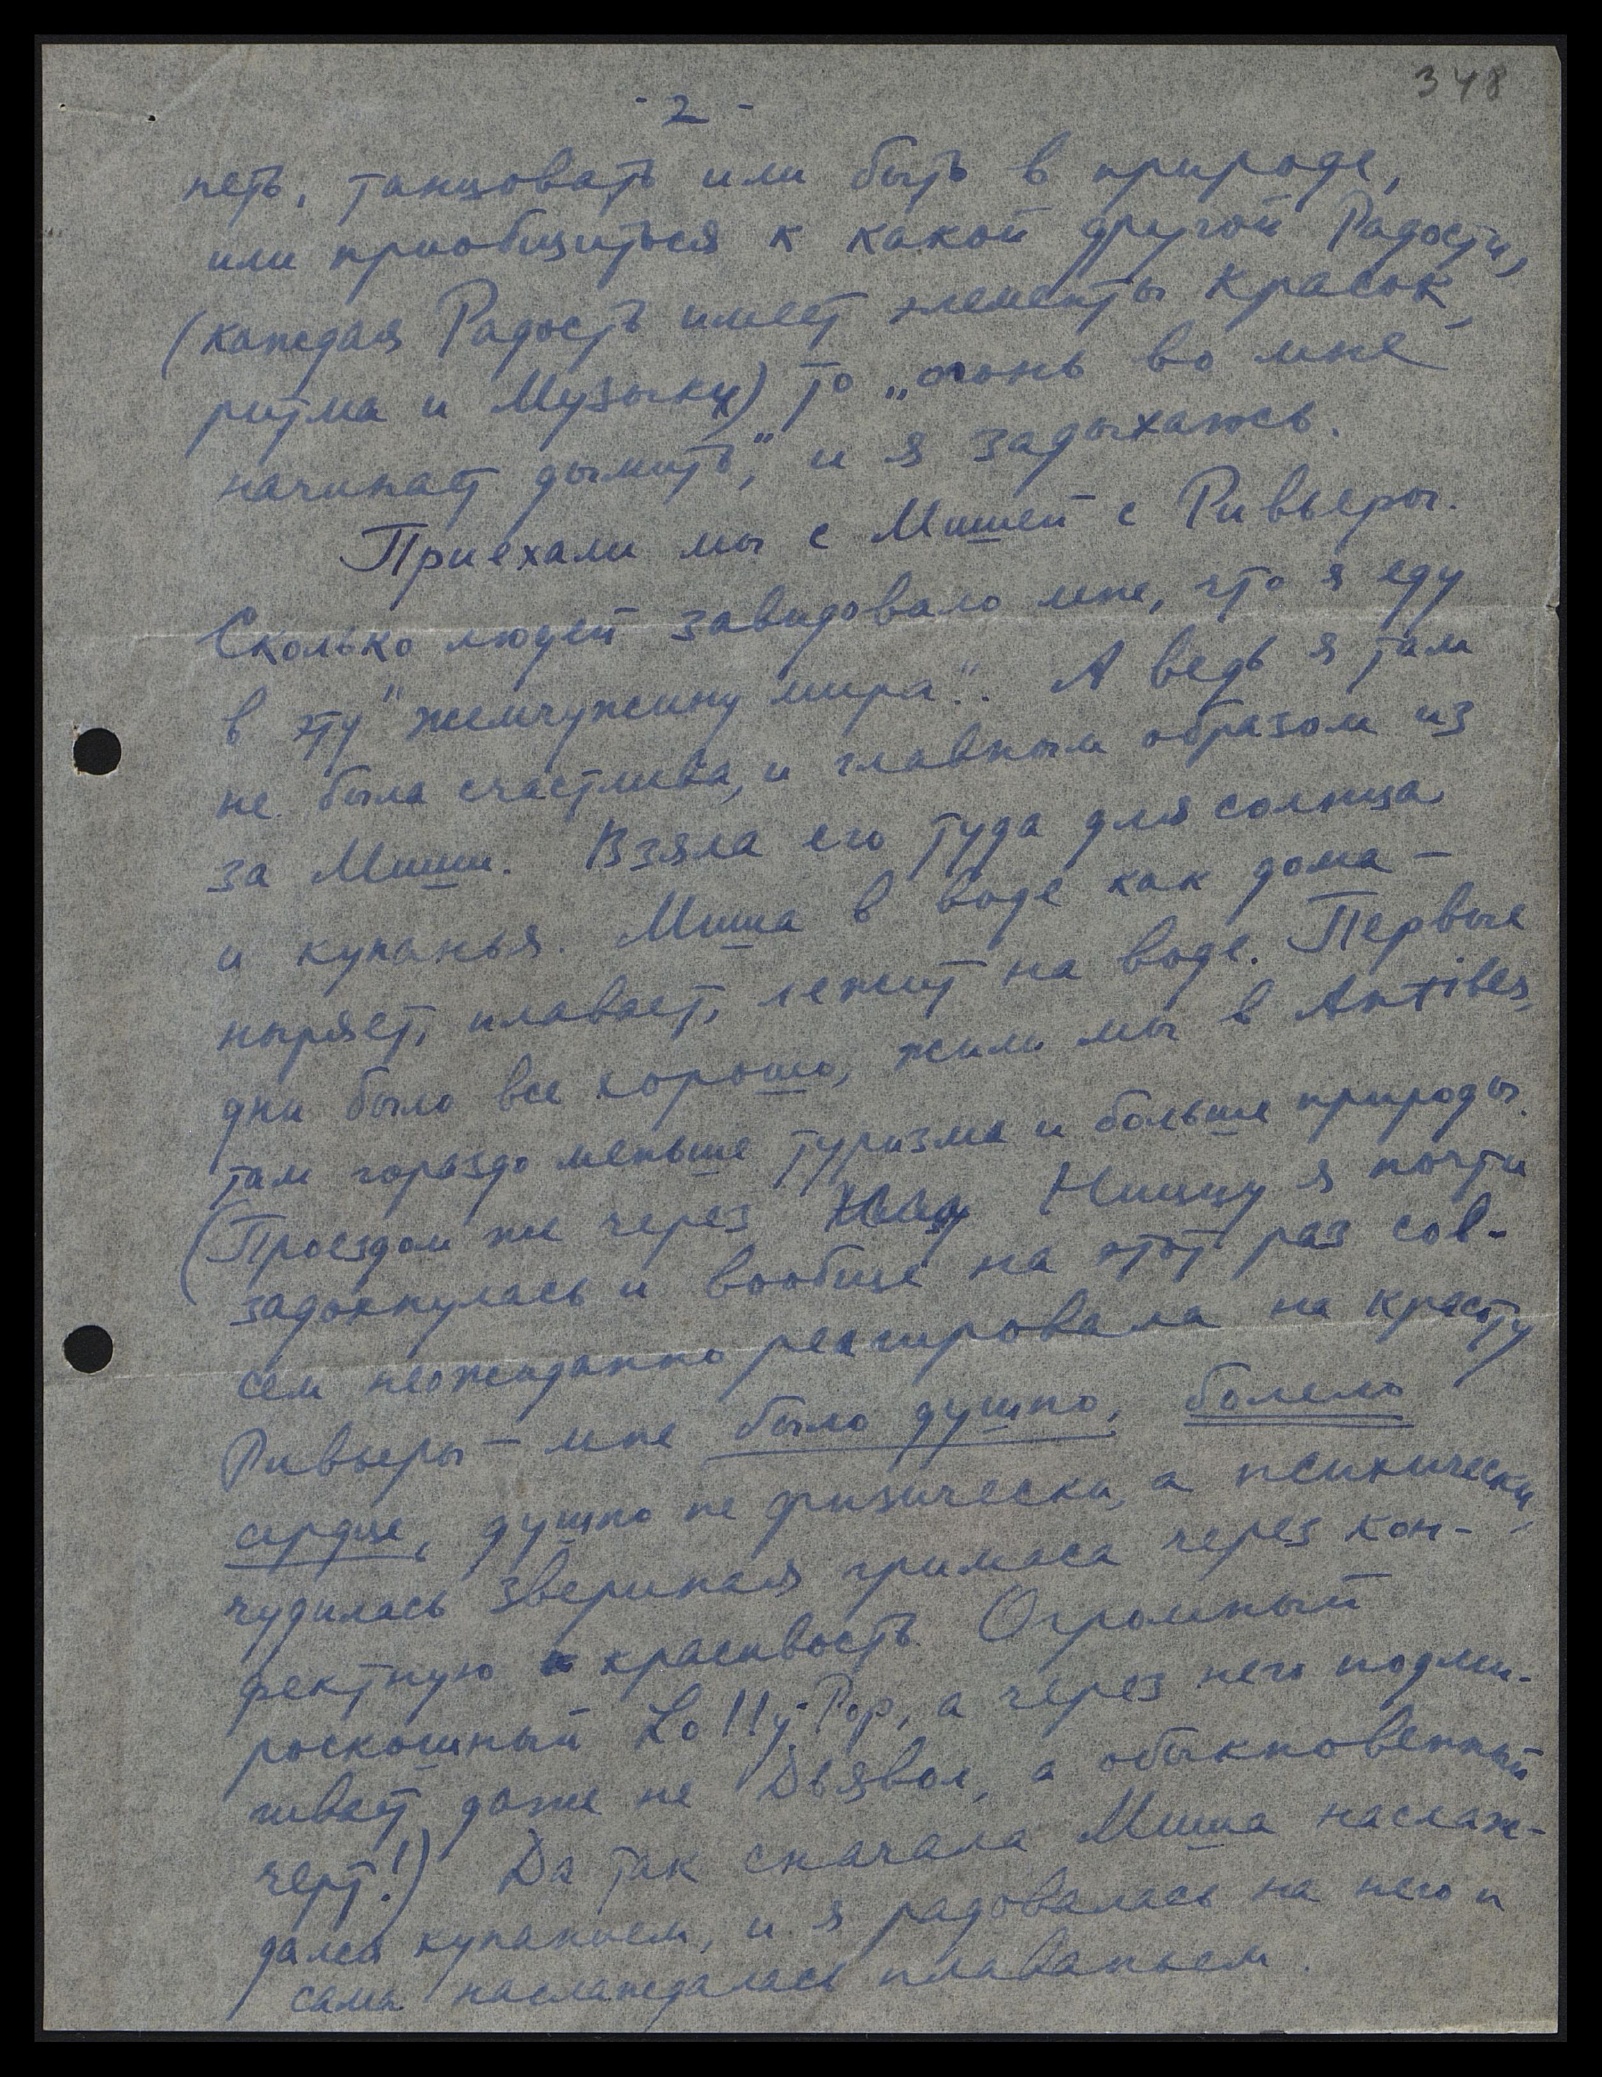 348
- 2 -
петь, танцовать или быть в природе,
или приобщиться к какой другой Радости,
(каждая Радость имеет элементы красок,
ритма и Музыки) то „огонь во мне
начинает дымить", и я задыхаюсь.
Приехали мы с Мишей с Ривьеры.
Сколько людей завидовало мне, что я еду
в эту "жемчужину мира". А ведь я там
не была счастлива, и главным образом из
за Миши. Взяла его туда для солнца
и купанья. Миша в воде как дома –
ныряет, плавает, лежит на воде. Первые
дни было все хорошо, жили мы в Antibes,
там гораздо меньше туризма и больше природы.
(Проездом же через Ниццу я почти
задохнулась и вообще на этот раз сов-
сем неожиданно реагировала на красоту
Ривьеры – мне было душно, болело
сердце, душно не физически, а психически,
чудилась звериная гримаса через кон-
фектную красивость. Огромный
роскошный Lolly-Pop, а через него подми-
гивает даже не Дьявол, а обыкновенный
черт!) Да так сначала Миша наслаж-
дался купаньем, и я радовалась на него и
сама наслаждалась плаваньем.